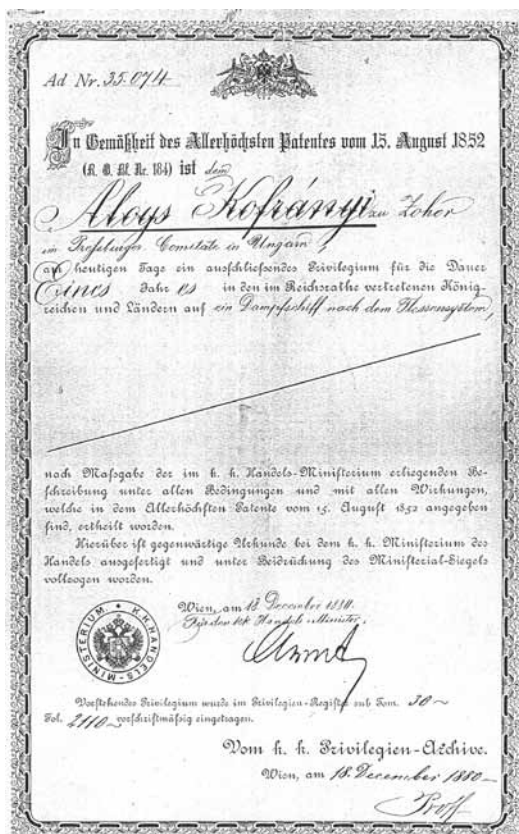 Ad Nr. 35.074
In Gemäßheit des Allerhöchsten Patentes vom 15. August 1852
(R. G. Bl. Nr. 184) ist dem
Aloys Kofrányi zu Zohor
im Pressburger Comitate in Ungarn
am heutigen Tage ein ausschliessendes Privilegium für die Dauer
Eines Jahres in den im Reichsrathe vertretenen König-
reichen und Ländern auf ein Dampfschiff nach dem
nach Massgabe der im k. k. Handels-Ministerium erliegenden Be-
schreibung unter allen Bedingungen und mit allen Wirkungen,
welche in dem Allerhöchsten Patente vom 15. August 1852 angegeben
sind, ertheilt worden.
Hierüber ist gegenwärtige Urkunde bei dem k. k. Ministerium des
Handels ausgefertigt und unter Beidrückung des Ministerial-Siegels
vollzogen worden.
Wien, am 18. December 1880.
Für den k.k. Handels-Minister.
K. K. HANDELS-MINISTERIUM
Vorstehendes Privilegium wurde im Privilegien-Register sub Tom. 30
Fol. 2110 vorschriftmässig eingetragen.
Vom k. k. Privilegien-Archive.
Wien, am 18. December 1880